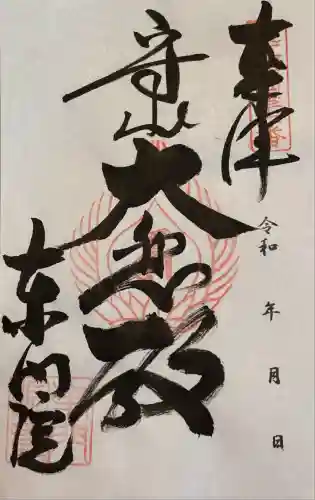 奉拝
令和　年　月　日
守山
大悲殿
東門院